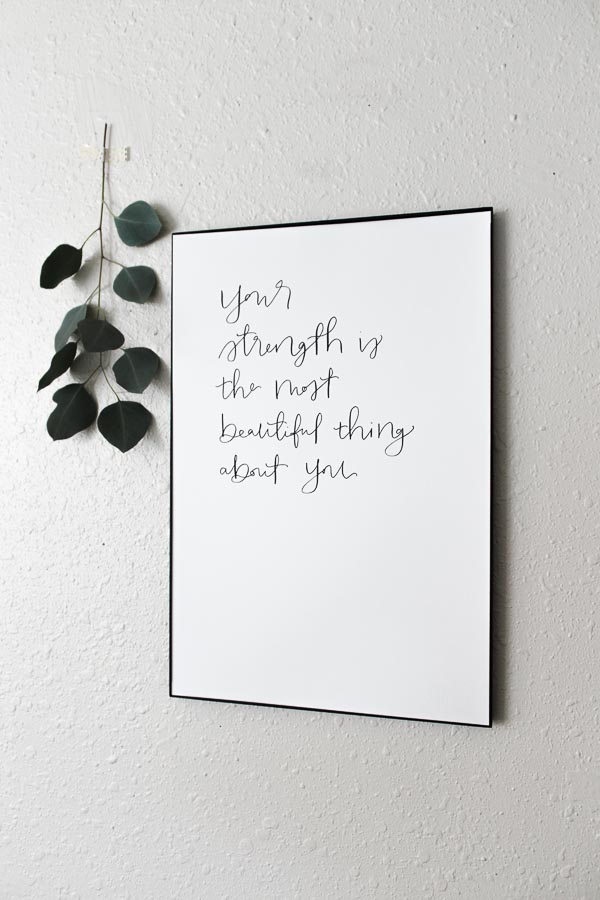 your
strength is
the most
beautiful thing
about you